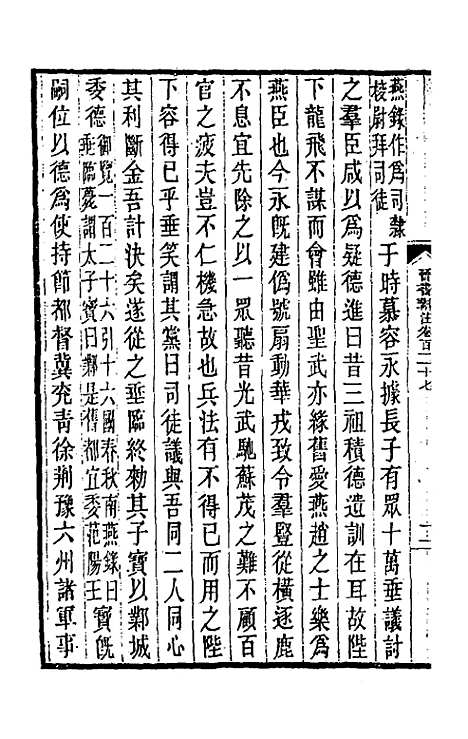 燕錄作爲司隸
棱尉拜司徒
于時慕容永據長子有眾十萬垂議討
之羣臣咸以爲疑德進曰昔三祖積德遺訓在耳故陛
下龍飛不謀而會雖由聖武亦緣舊愛燕趙之士樂爲
燕臣也今永旣建僞號扇動華戎致令羣豎從橫逐鹿
不息宜先除之以一眾聽昔光武馳蘇茂之難不顧百
官之疲夫豈不仁機急故也兵法有不得已而用之陛
下容得已乎垂笑謂其黨曰司徒議與吾同二人同心
其利斷金吾計決矣遂從之垂臨終勑其子寶以鄴城
委德
御覽一百二十六引十六國春秋南燕錄曰
垂臨薨謂太子寶曰鄴是舊都宜委范陽王
寶旣
嗣位以德爲使持節都督冀兗青徐荆豫六州諸軍事
晉書斠注卷百二十七